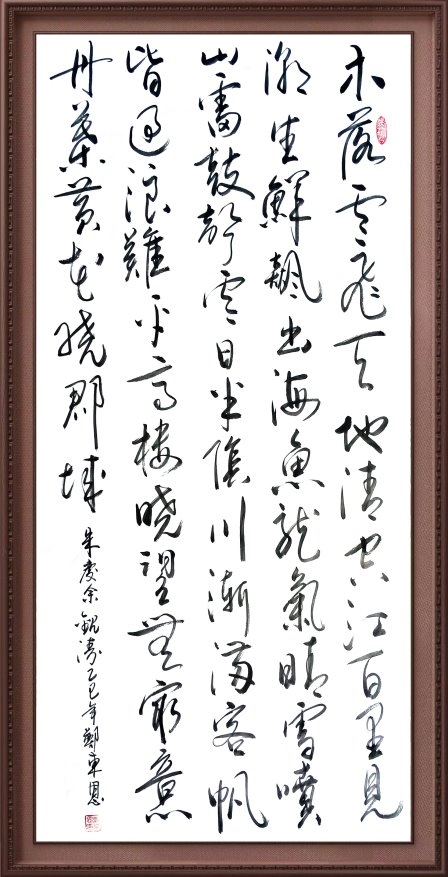 木落雲飛天地清空江百里見
潮生鮮飆出海魚龍氣晴雪噴
山雷鼓聲雲日半陰川漸滿客帆
皆過浪難平高樓曉望無窮意
丹葉黃花繞郡城
朱慶余觀濤乙巳年鄭東恩